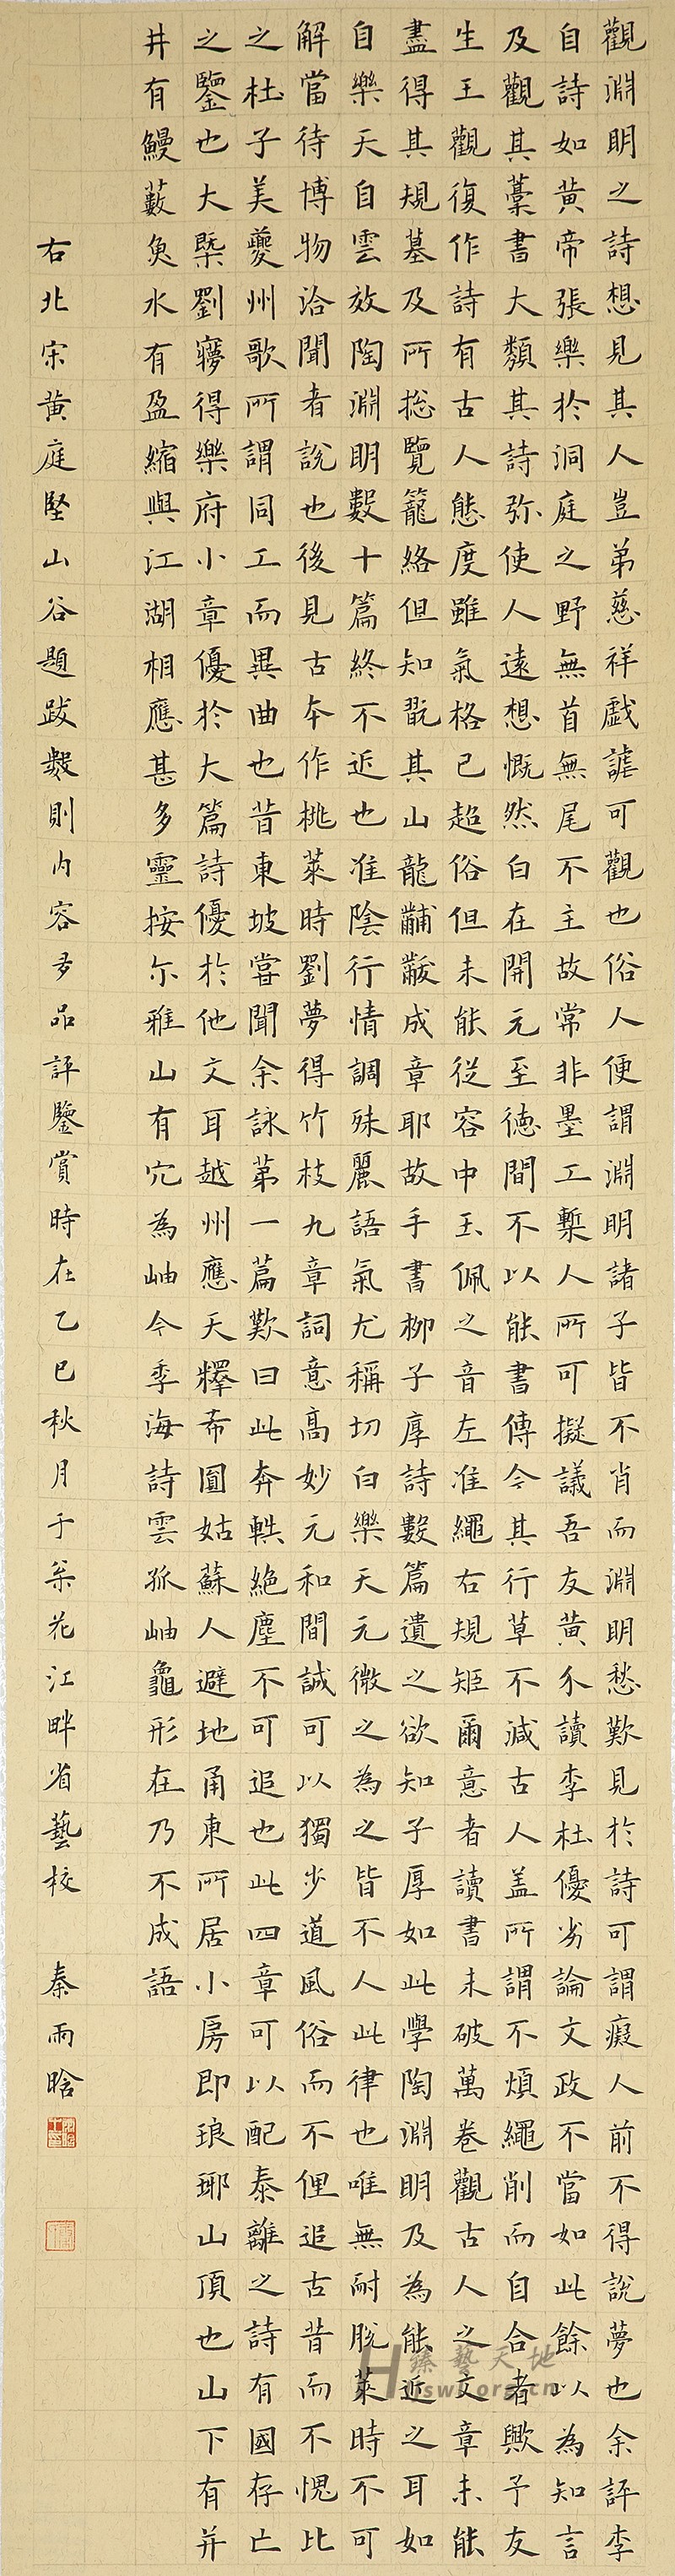 觀淵明之詩想見其人豈弟慈祥戲謔可觀也俗人便謂淵明諸子皆不肖而淵明愁歎見於詩可謂癡人前不得說夢也余評李
自詩如黃帝張樂於洞庭之野無首無尾不主故常非墨工槧人所可擬議吾友黃介讀李杜優劣論文政不當如此餘以為知言
及觀其藁書大類其詩弥使人遠想慨然白在開元至德間不以能書傳今其行草不減古人蓋所謂不煩繩削而自合者歟予友
生王觀復作詩有古人態度雖氣格已超俗但未能從容中玉佩之音左准繩右規矩爾意者讀書未破萬卷觀古人之文章未能
盡得其規墓及所揔覽籠絡但知翫其山龍黼黻成章耶故手書柳子厚詩數篇遺之欲知子厚如此學陶淵明及為能近之耳如
自樂天自雲效陶淵明數十篇終不近也准陰行情調殊麗語氣尤稱切白樂天元微之為之皆不人此律也唯無耐脫萊時不可
解當待博物洽聞者說也後見古本作桃萊時劉夢得竹枝九章詞意高妙元和間誠可以獨步道風俗而不俚追古昔而不愧比
之杜子美夔州歌所謂同工而異曲也昔東坡嘗聞余詠第一篇歎曰此奔軼絕塵不可追也此四章可以配泰離之詩有國存亡
之鑒也大槩劉夢得樂府小章優於大篇詩優於他文耳越州應天釋希圓姑蘇人避地甬東所居小房即琅琊山頂也山下有井
井有鰻藪魚水有盈縮與江湖相應甚多靈按尒雅山有穴為岫今季海詩雲孤岫龜形在乃不成語
右北宋黃庭堅山谷題跋數則內容多品評鑒賞時在乙巳秋月于花江畔省藝校 秦雨晗
臻藝天地